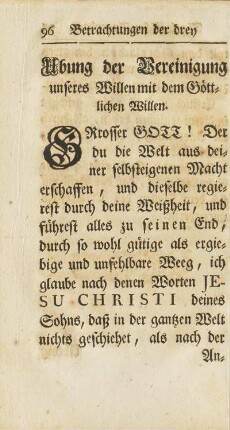 96 Betrachtungen der drey
Ubung der Vereinigung
unseres Willen mit dem Gött-
lichen Willen.
GRosser GOTT! Der
du die Welt aus dei-
ner selbsteigenen Macht
erschaffen, und dieselbe regie-
rest durch deine Weißheit, und
führest alles zu seinen End,
durch so wohl gütige als ergie-
bige und unfehlbare Weeg, ich
glaube nach denen Worten JE-
SU CHRISTI deines
Sohns, daß in der gantzen Welt
nichts geschiehet, als nach der
An-